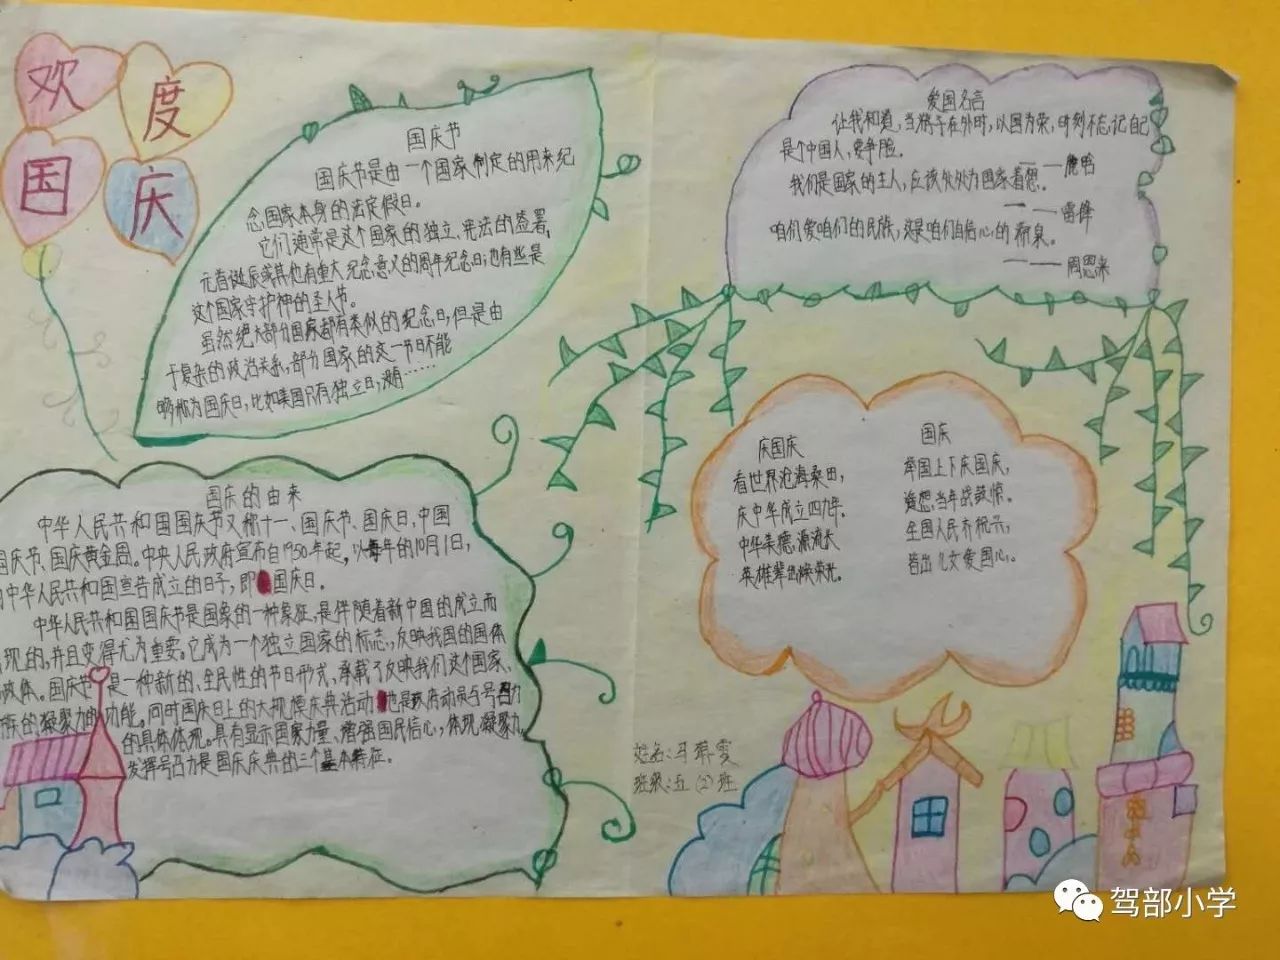 欢度
国庆
国庆节
国庆节是由一个国家制定的用来纪
念国家本身的法定假日。
它们通常是这个国家的独立、宪法的签署,
元首诞辰或其他有重大纪念意义的周年纪念日;也有些是
这个国家守护神的圣人节。
虽然绝大部分国家都有类似的纪念日,但是由
于复杂的政治关系,部分国家的这一节日不能
够称为国庆日,比如美国只有独立日,没有……
国庆的由来
中华人民共和国国庆节又称十一、国庆节、国庆日、中国
国庆节、国庆黄金周。中央人民政府宣布自1950年起,以每年的10月1日,
中华人民共和国宣告成立的日子,即国庆日。
中华人民共和国国庆节是国家的一种象征,是伴随着新中国的成立而
现的,并且变得尤为重要。它成为一个独立国家的标志,反映我国的国体
政体。国庆节是一种新的、全民性的节日形式,承载了反映我们这个国家、
族的凝聚力的功能。同时国庆日上的大规模庆典活动也是政府动员与号召力
的具体体现。具有显示国家力量、增强国民信心,体现凝聚力,
发挥号召力是国庆庆典的三个基本特征。
爱国名言
让我知道,当游子在外时,以国为荣,时刻不忘记自己
是个中国人,要争脸。
我们是国家的主人,应该处处为国家着想。
———雷锋
咱们爱咱们的民族,这是咱们自信心的源泉。
———周恩来
庆国庆
看世界沧海桑田,
庆中华成立四九年。
中华美德源流长
英雄辈出焕荣光。
国庆
举国上下庆国庆,
遥想当年战鼓惊。
全国人民齐祝兴,
皆出儿女爱国心。
班级:五(2)班
驾部小学